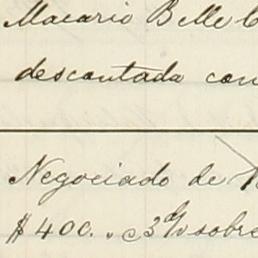 Macario Belle
descontada con
Negociado de
$400.. c 3% sobre